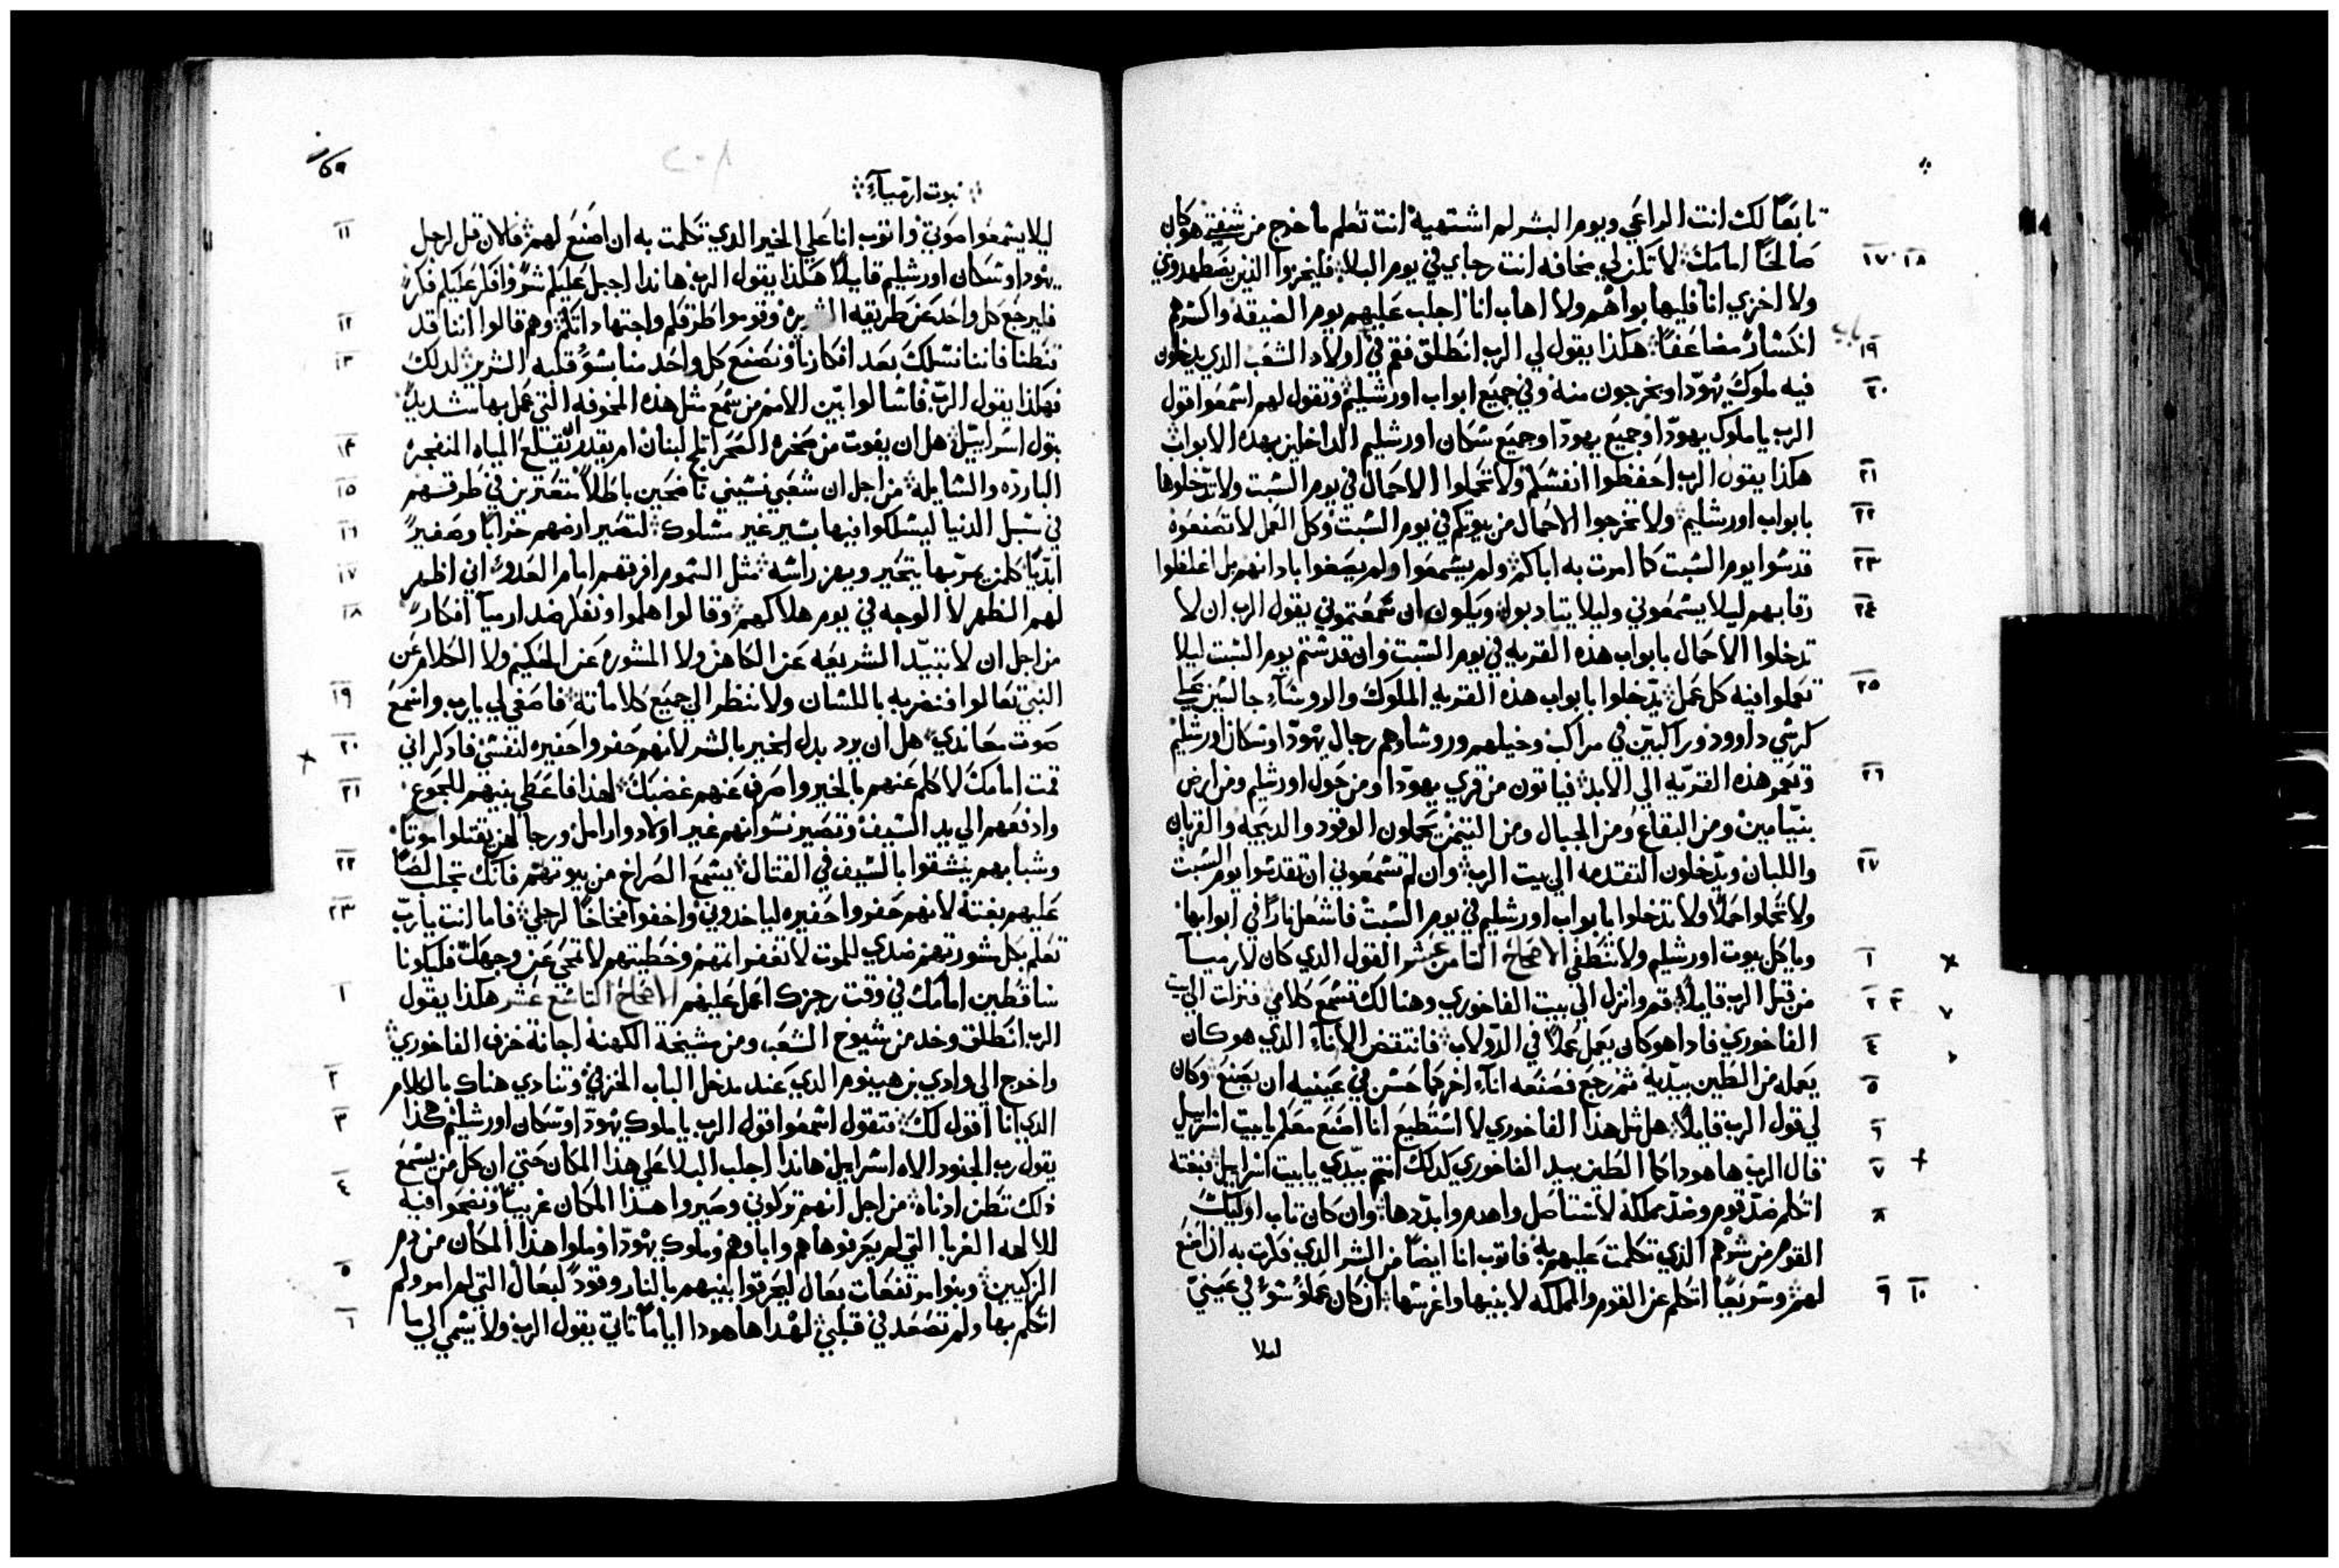 تابعًا لك انت الراعي ويوم البشر لم اشتهيه انت تعلم ما خرج من شفتي هو كان
صالحًا امامك لا تكن لي مخافه انت رجاي في يوم البلا فليخزوا الذين يضطهدوني
ولا اخزي انا فليهابوا هم ولا اهاب انا اجلب عليهم يوم الضيقه واكسرهم
انكسارً مضاعفًا هكذا يقول لي الرب انطلق فقم في اولاد الشعب الذي يدخلون
فيه ملوك يهودا ويخرجون منه وفي جميع ابواب اورشليم وتقول لهم اسمعوا قول
الرب يا ملوك يهودا وجميع يهودا وجميع سكان اورشليم الداخلين بهذه الابواب
هكذا يقول الرب احفظوا انفسكم ولا تحملوا الاحمال في يوم السبت ولا تدخلوها
بابواب اورشليم ولا تخرجوا الاحمال من بيوتكم في يوم السبت وكل العمل لا تصنعوه
قدسوا يوم السبت كما امرت به اباكم ولم يسمعوا ولم يصغوا باذانهم بل اغلظوا
رقابهم ليلا يسمعوني وليلا يتادبوا ويكون ان سمعتموني يقول الرب ان لا
تدخلوا الاحمال بابواب هذه القريه في يوم السبت وان قدستم يوم السبت ليلا
تعملوا فيه كل عمل يدخلوا بابواب هذه القريه الملوك والروساء جالسين علي
كرسي داوود وراكبين في مراكب وخيلهم وروساوهم رجال يهودا وسكان اورشليم
وتعمر هذه القريه الي الابد فياتون من قري يهودا ومن حول اورشليم ومن ارض
بنيامين ومن البقاع ومن الجبال ومن التيمن يحملون الوقود والذبيحه والقربان
واللبان ويدخلون التقدمه الي بيت الرب وان لم تسمعوني ان تقدسوا يوم السبت
ولا تحملوا حملًا ولا تدخلوا بابواب اورشليم في يوم السبت فاشعل نارًا في ابوابها
وياكل بيوت اورشليم ولا تنطفي الاصحاح الثامن عشر القول الذي كان لارميا
من قبل الرب قايلًا قم وانزل الي بيت الفاخوري وهنالك تسمع كلامي فنزلت الي بيت
الفاخوري فاذا هو كان يعمل عملًا في الدولاب فانتقض الاناء الذي هو كان
يعمله من الطين بيديه ثم رجع فصنعه اناء اخر كما حسن في عينيه ان يصنع وكان
لي قول الرب قايلًا هل مثل هذا الفاخوري لا استطيع انا اصنع معكم يا بيت اسراييل
قال الرب ها هوذا كما الطين بيد الفاخوري كذلك انتم بيدي يا بيت اسراييل فبغته
اتكلم ضد قوم وضد مملكه لاستاصل واهدم وابددها وان كان تاب اوليك
القوم من شرهم الذي تكلمت عليهم به فاتوب انا ايضًا من الشر الذي فكرت به ان اصنع
لهم وسريعًا اتكلم عن القوم والمملكه لابنيها واغرسها ان كان عملوا سو في عيني
ليلا
نبوت ارمياء
ليلا يسمعوا صوتي واتوب انا علي الخير الذي تكلمت به ان اصنع لهم فالان قل لرجل
يهودا وسكان اورشليم قايلًا هكذا يقول الرب هانذا اجبل عليكم شرًا وافكر عليكم فكرً
فليرجع كل واحد عن طريقه وقوموا طرقكم واجتهاداتكم وهم قالوا اننا قد
قنطنا فاننا نسلك بعد افكارنا ونصنع كل واحد منا بسو قلبه الشرير لذلك
فهكذا يقول الرب فاسالوا بين الامم من سمع مثل هذه المخوفه التي عمل بها شديد
بتول اسراييل هل ان يفوت من صخره الصحرا ثلج لبنان ام يقدر ان يقلع المياه المنفجره
البارده والسايله من اجل ان شعبي نسيني ناضحين باطلًا متعثرين في طرقهم
في سبل الدنيا ليسلكوا فيها بسير غير مسلوك لتصير ارضهم خرابًا وصفيرً
ابديًا كلمن يمر بها يتحير ويهز راسه مثل السموم افرقهم امام العدو اني اظهر
لهم الظهر لا الوجه في يوم هلاكهم وقالوا هلموا ونفكر ضد ارميا افكارً
من اجل ان لا تبيد الشريعه عن الكاهن ولا المشوره عن الحكيم ولا الكلام عن
النبي تعالوا فنضربه باللسان ولا ننظر الي جميع كلاماته فاصغي لي يا رب واسمع
صوت معاندي هل ان يرد بدل الخير بالشر لانهم حفروا حفيره لنفسي فاذكر اني
قمت امامك لاكلم عنهم بالخير واصرف عنهم غضبك لهذا فاعطي بنيهم للجوع
وادفعهم الي يد السيف وتصير نسوانهم غير اولاد وارامل ورجالهن يقتلوا موتًا
وشبابهم ينشقوا بالسيف في القتال يسمع الصراخ من بيوتهم فانك تجلب لصًا
عليهم بغتة لانهم حفروا حفيره لياخدوني واخفوا فخاخًا لرجلي فاما انت يا رب
تعلم بكل مشورتهم ضدي للموت لا تغفر اثمهم وخطيتهم لا تمحي عن وجهك فليكونا
ساقطين امامك في وقت رجزك اعمل عليهم الاصحاح التاسع عشر هكذا يقول
الرب انطلق وخد من شيوخ الشعب ومن مشيخة الكهنه اجانة خزف الفاخوري
واخرج الي وادي بن هينوم الذي عند مدخل الباب الخزفي وتنادي هناك بالكلام
الذي انا اقول لك فتقول اسمعوا قول الرب يا ملوك يهودا وسكان اورشليم هكذا
يقول رب الجنود الاه اسراييل هانذا اجلب البلا علي هذا المكان حتي ان كل من يسمع
ذلك تطن ادناه من اجل انهم تركوني وصيروا هذا المكان غريبًا ونضحوا فيه
للالهه الغربا التي لم يعرفوها هم واباوهم وملوك يهودا وملوا هذا المكان من دم
الزكيين وبنوا مرتفعات بعال ليحرقوا بنيهم بالنار وقودً لبعال التي لم امر ولم
اتكلم بها ولم تصعد في قلبي لهذا ها هوذا اياما تاتي يقول الرب ولا يسمي الي ما